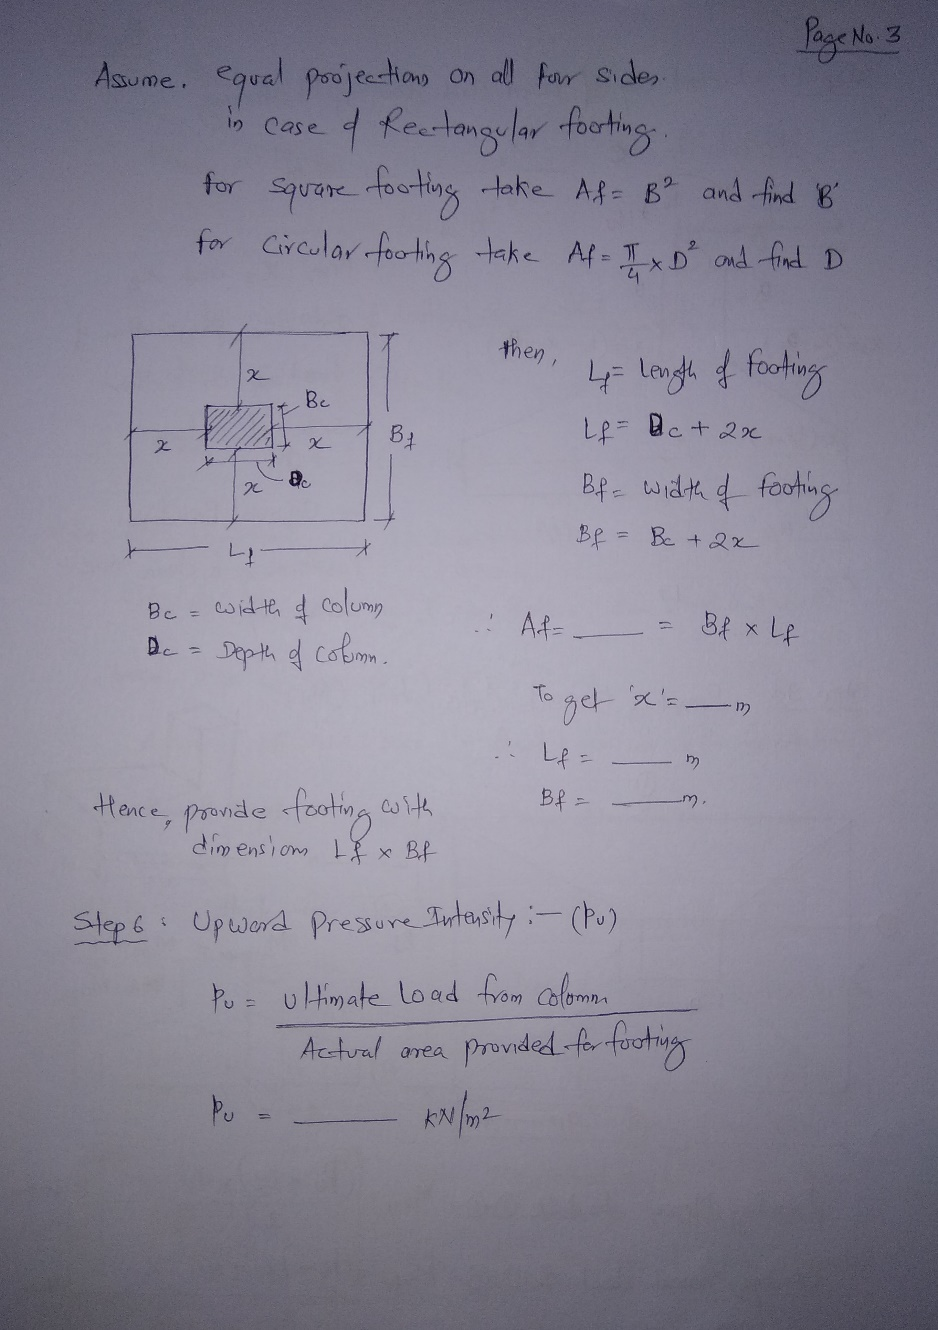 Page No. 3
Assume. equal projections on all four sides.
in case of Rectangular footing.
for square footing take Af = B² and find 'B'
for Circular footing take Af = π/4 × D² and find D
x
Bc
x
x
Bf
x
Dc
Lf
then,
Lf = length of footing
Lf = Dc + 2x
Bf = width of footing
Bf = Bc + 2x
Bc = width of column
Dc = Depth of column.
∴ Af = ____ = Bf × Lf
To get 'x' = ____ m
∴ Lf = ____ m
Bf = ____ m.
Hence, provide footing with
dimensions Lf × Bf
Step 6 : Upward Pressure Intensity :- (Pu)
Pu = ultimate load from column
Actual area provided for footing
Pu = ____ kN/m2